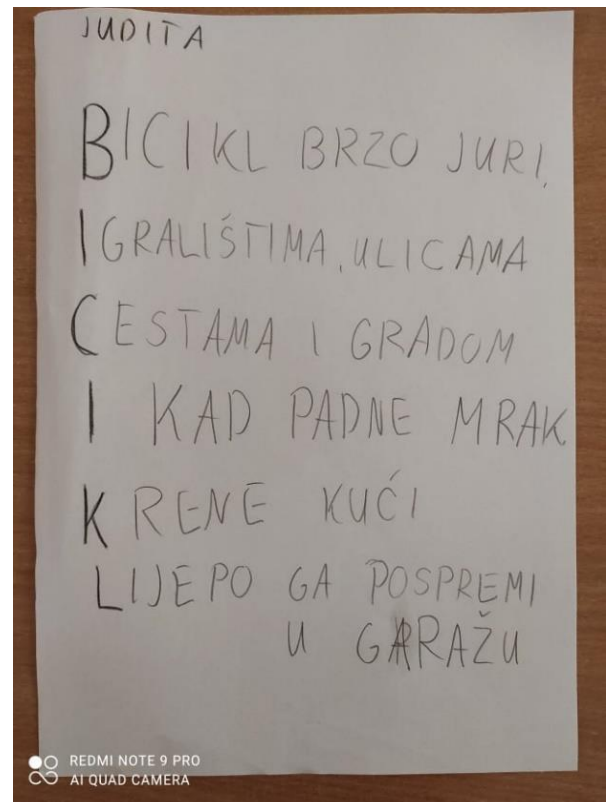 JUDITA
BICIKL BRZO JURI,
IGRALIŠTIMA, ULICAMA
CESTAMA I GRADOM
I KAD PADNE MRAK
KRENE KUĆI
LIJEPO GA POSPREMI
U GARAŽU
REDMI NOTE 9 PRO
AI QUAD CAMERA